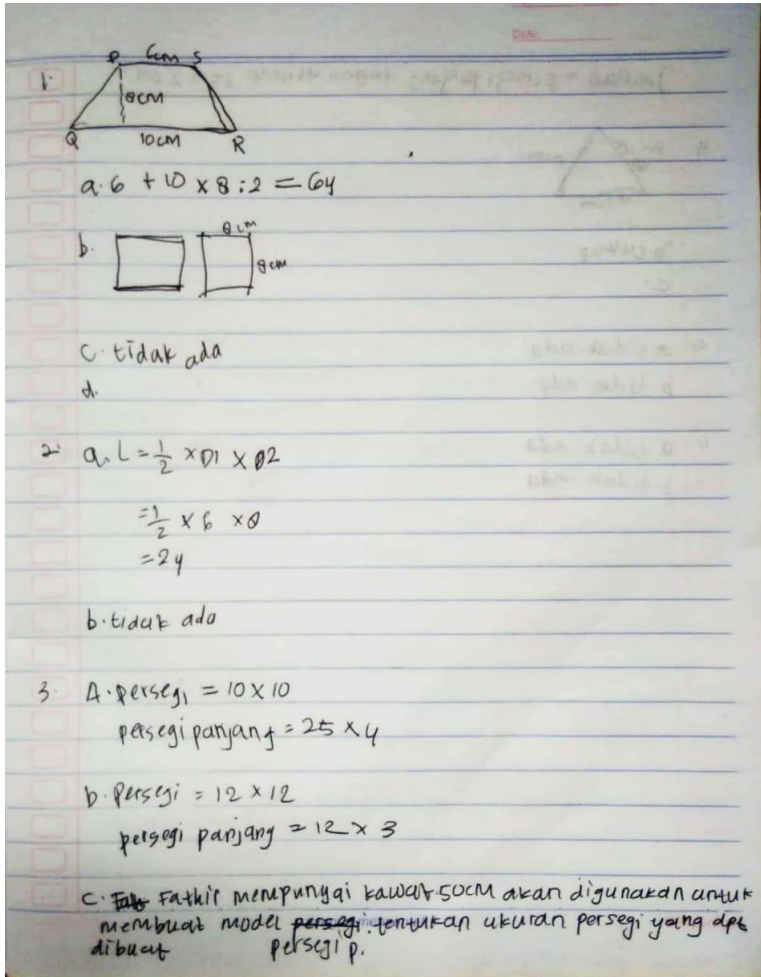 Date.
1. P 6cm S
8cm
Q 10cm R
a. 6 + 10 x 8 : 2 = 64
b. 8cm
8cm
c. tidak ada
d.
2. a. L = 1/2 x D1 x D2
= 1/2 x 6 x 8
= 24
b. tidak ada
3. A. persegi = 10 x 10
persegi panjang = 25 x 4
b. Persegi = 12 x 12
persegi panjang = 12 x 3
c. Fathir mempunyai kawat 50cm akan digunakan untuk
membuat model persegi. tentukan ukuran persegi yang dpt
dibuat persegi p.